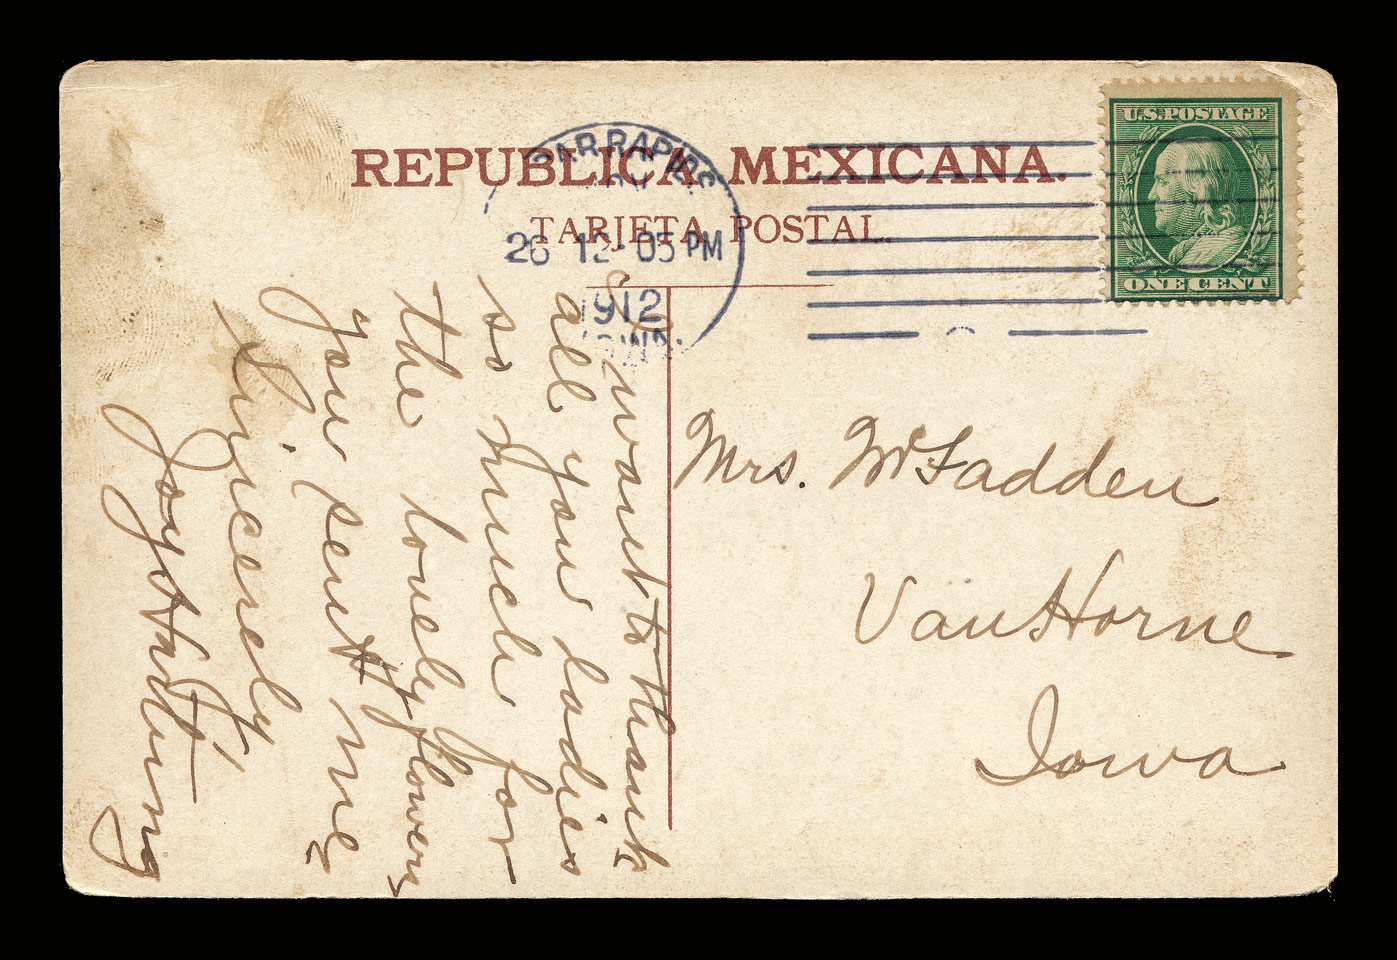 REPUBLICA MEXICANA.
TARJETA POSTAL.
U.S. POSTAGE
ONE CENT
DAR RAPIDS
26 12-05 PM
1912
IOWA.
I want to thank
all you ladies
so much for
the lovely flowers
you sent me
Sincerely
Joy
Mrs. McFadden
Van Horne
Iowa